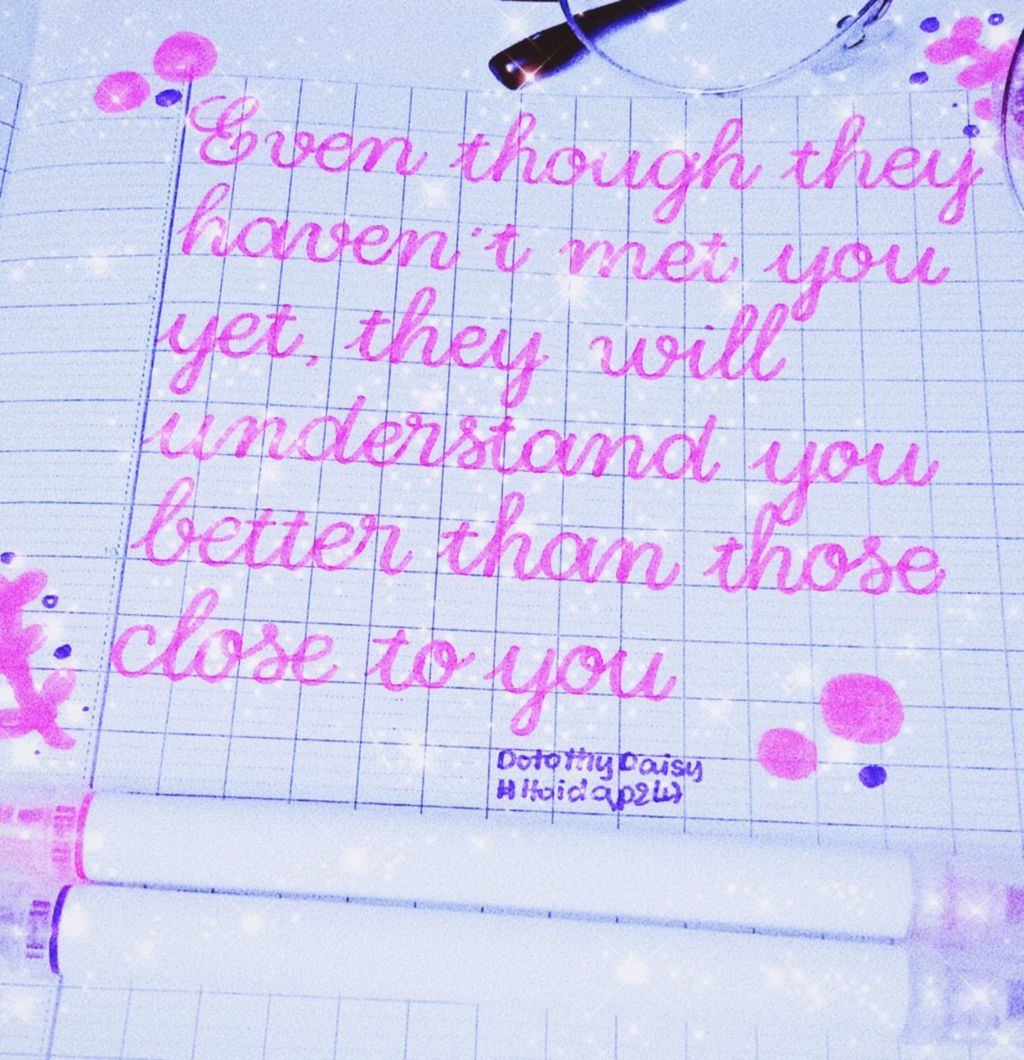 Even though they
haven't met you
yet, they will
understand you
better than those
close to you
Dorothy Daisy